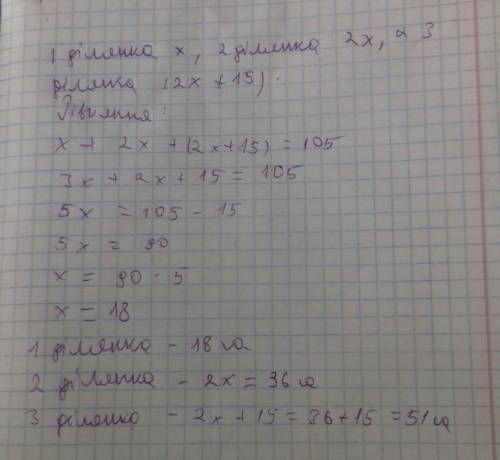 1 ділянка x, 2 ділянка 2x, а 3
ділянка (2x + 15).
Рівняння:
x + 2x + (2x+15) = 105
3x + 2x + 15 = 105
5x = 105 - 15
5x = 90
x = 90 : 5
x = 18
1 ділянка - 18 га
2 ділянка - 2x = 36 га
3 ділянка - 2x + 15 = 36 + 15 = 51 га